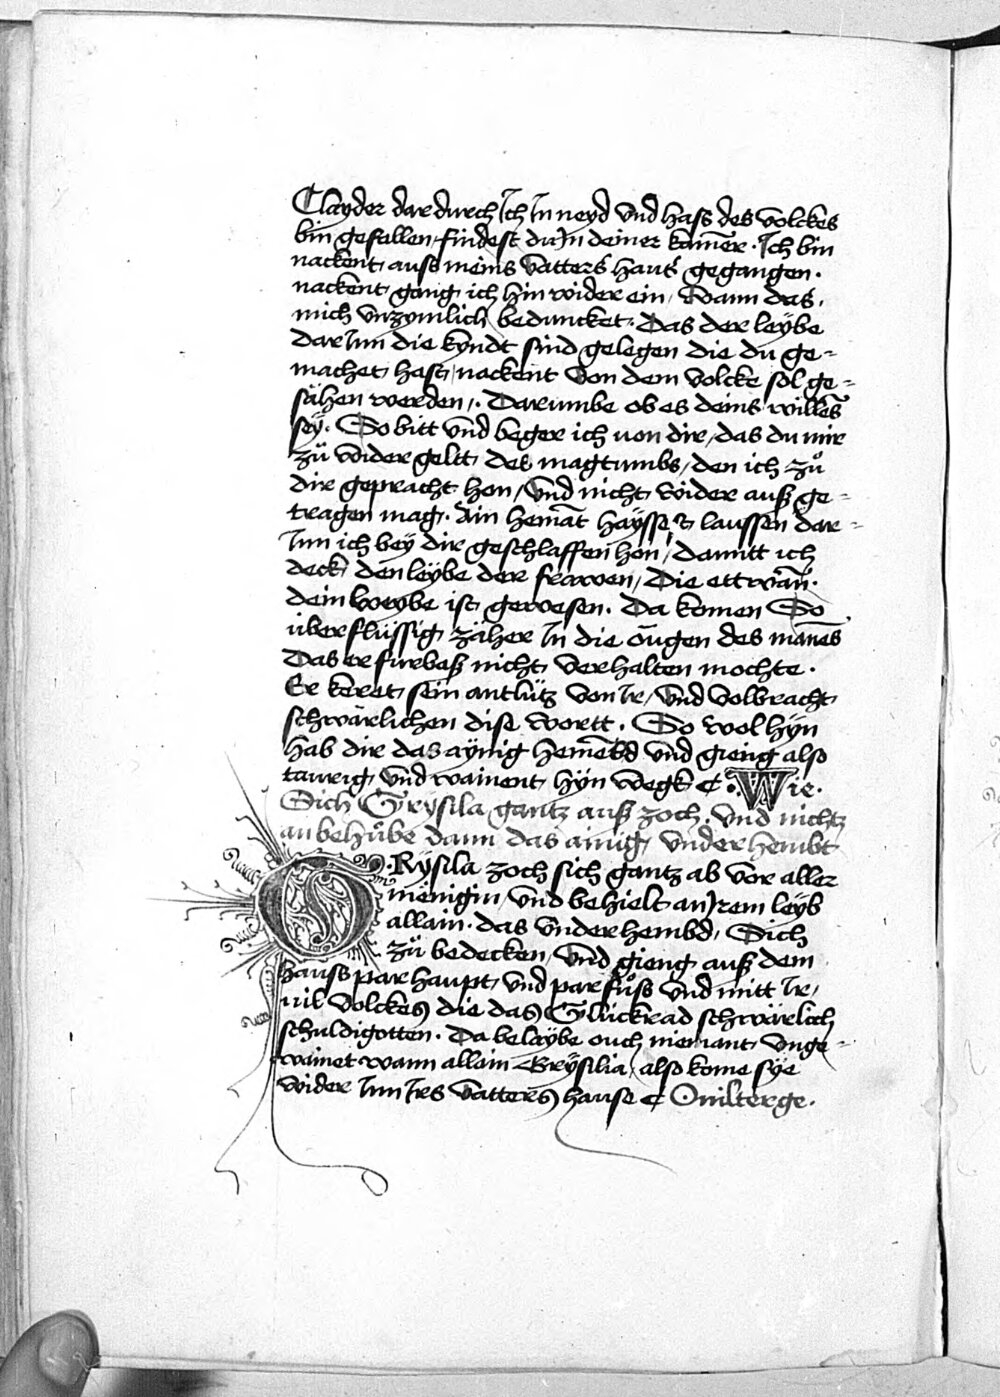 Clayder dar durch Ich In neyd vnd hass des volckes
bin gefallen / findest du In deiner kam̄er · Ich bin
nackent auss meins vatters haus gegangen ·
nackent gang ich hin wider ein / Wann das
mich vnzymlich beduncket · Das der leybe
dar Inn die kyndt sind gelegen die du ge-
machet hast / nackent von dem volcke sol ge-
sähen werden / · Darumbe ob es deins willes
sey̋ · So bitt vnd beger ich uon dir / das du mir
zů wider geltt des magtumbs / den ich zů
dir gepracht hon / vnd nicht wider auß ge-
tragen mag · Ain hemat haysse laussen dar-
Inn ich bey dir geschlaffen hon / damitt ich
deck den leybe der frawen / Die ettwan ·
dein weybe ist gewesen · Da komen So
überflüssig zäher In die ougen des man̄es
Das er furbaß nicht verhalten mochte ·
Er keret sein antlütz von Ir / vnd volbracht
schwärlichen dise wortt · So wol hÿn
hab dir das aÿnig hemebd vnd gieng also
taurig vnd wainent hÿn wegk ¶ · Wie ·
Sich Grÿsila gantz auß zoch · vnd nichtz
an behůbe dann das ainig vnderhembt
G · Rÿsila zoch sich gantz ab vor aller
mënigin / vnd behielt an Irem leÿb
allain · das vnderhembd / Sich
zů bedecken / vnd gieng auß dem
hauss par haupt / vnd par fůss vnd mitt Ir /
uil volckes die das Glückrad schwärlich
schuldigotten · Da belaÿbe ouch niemant vnge-
wainet wann allain Grÿsilia / also kome sÿe
wider Inn Irs vatters hause ¶ Ouilterge ·